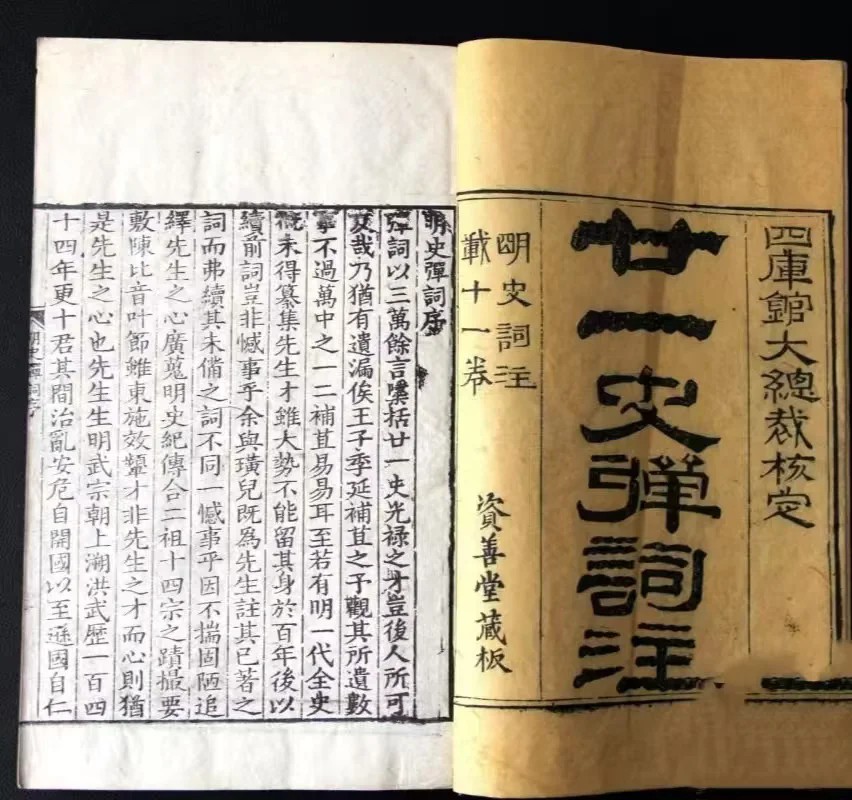 四庫館大總裁核定
廿一史彈詞注
明史詞注
載十一卷
資善堂藏板
明史彈詞序
彈詞以三萬餘言櫽括廿一史光祿之才豈後人所可
及哉乃猶有遺漏俟王子季延補苴之予觀其所遺數
事不過萬中之一二補苴易易耳至若有明一代全史
概未得纂集先生才雖大勢不能留其身於百年後以
續前詞豈非憾事乎余與璜兒既為先生註其已著之
詞而弗續其未備之詞不同一憾事乎因不揣固陋追
繹先生之心廣蒐明史紀傳合二祖十四宗之蹟撮要
敷陳比音叶節雖東施效顰才非先生之才而心則猶
是先生之心也先生生明武宗朝上溯洪武歷一百四
十四年更十君其間治亂安危自開國以至遜國自仁
明史彈詞序